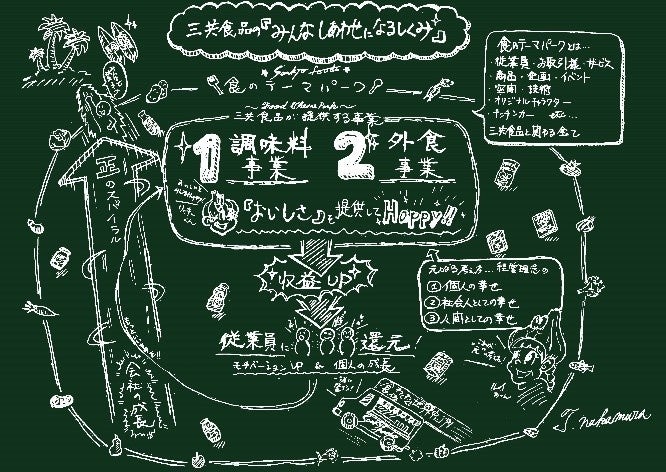 三共食品の『みんなしあわせになるしくみ』
Sankyo Foods
食のテーマパーク
Food Theme Park
三共食品が提供する事業
1 調味料事業
2 外食事業
『おいしさ』を提供して Happy!!
収益UP
従業員に還元
モチベーションUP & 個人の成長
正のスパイラル
会社の成長
食のテーマパークとは…
従業員・お取引様・サービス
・商品・企画・イベント
・空間・技術
・オリジナルキャラクター
・キッチンカー etc…
三共食品に関わる全て
元になる考え方…経営理念の
①個人の幸せ
②社会人としての幸せ
③人間としての幸せ
T. nakamura